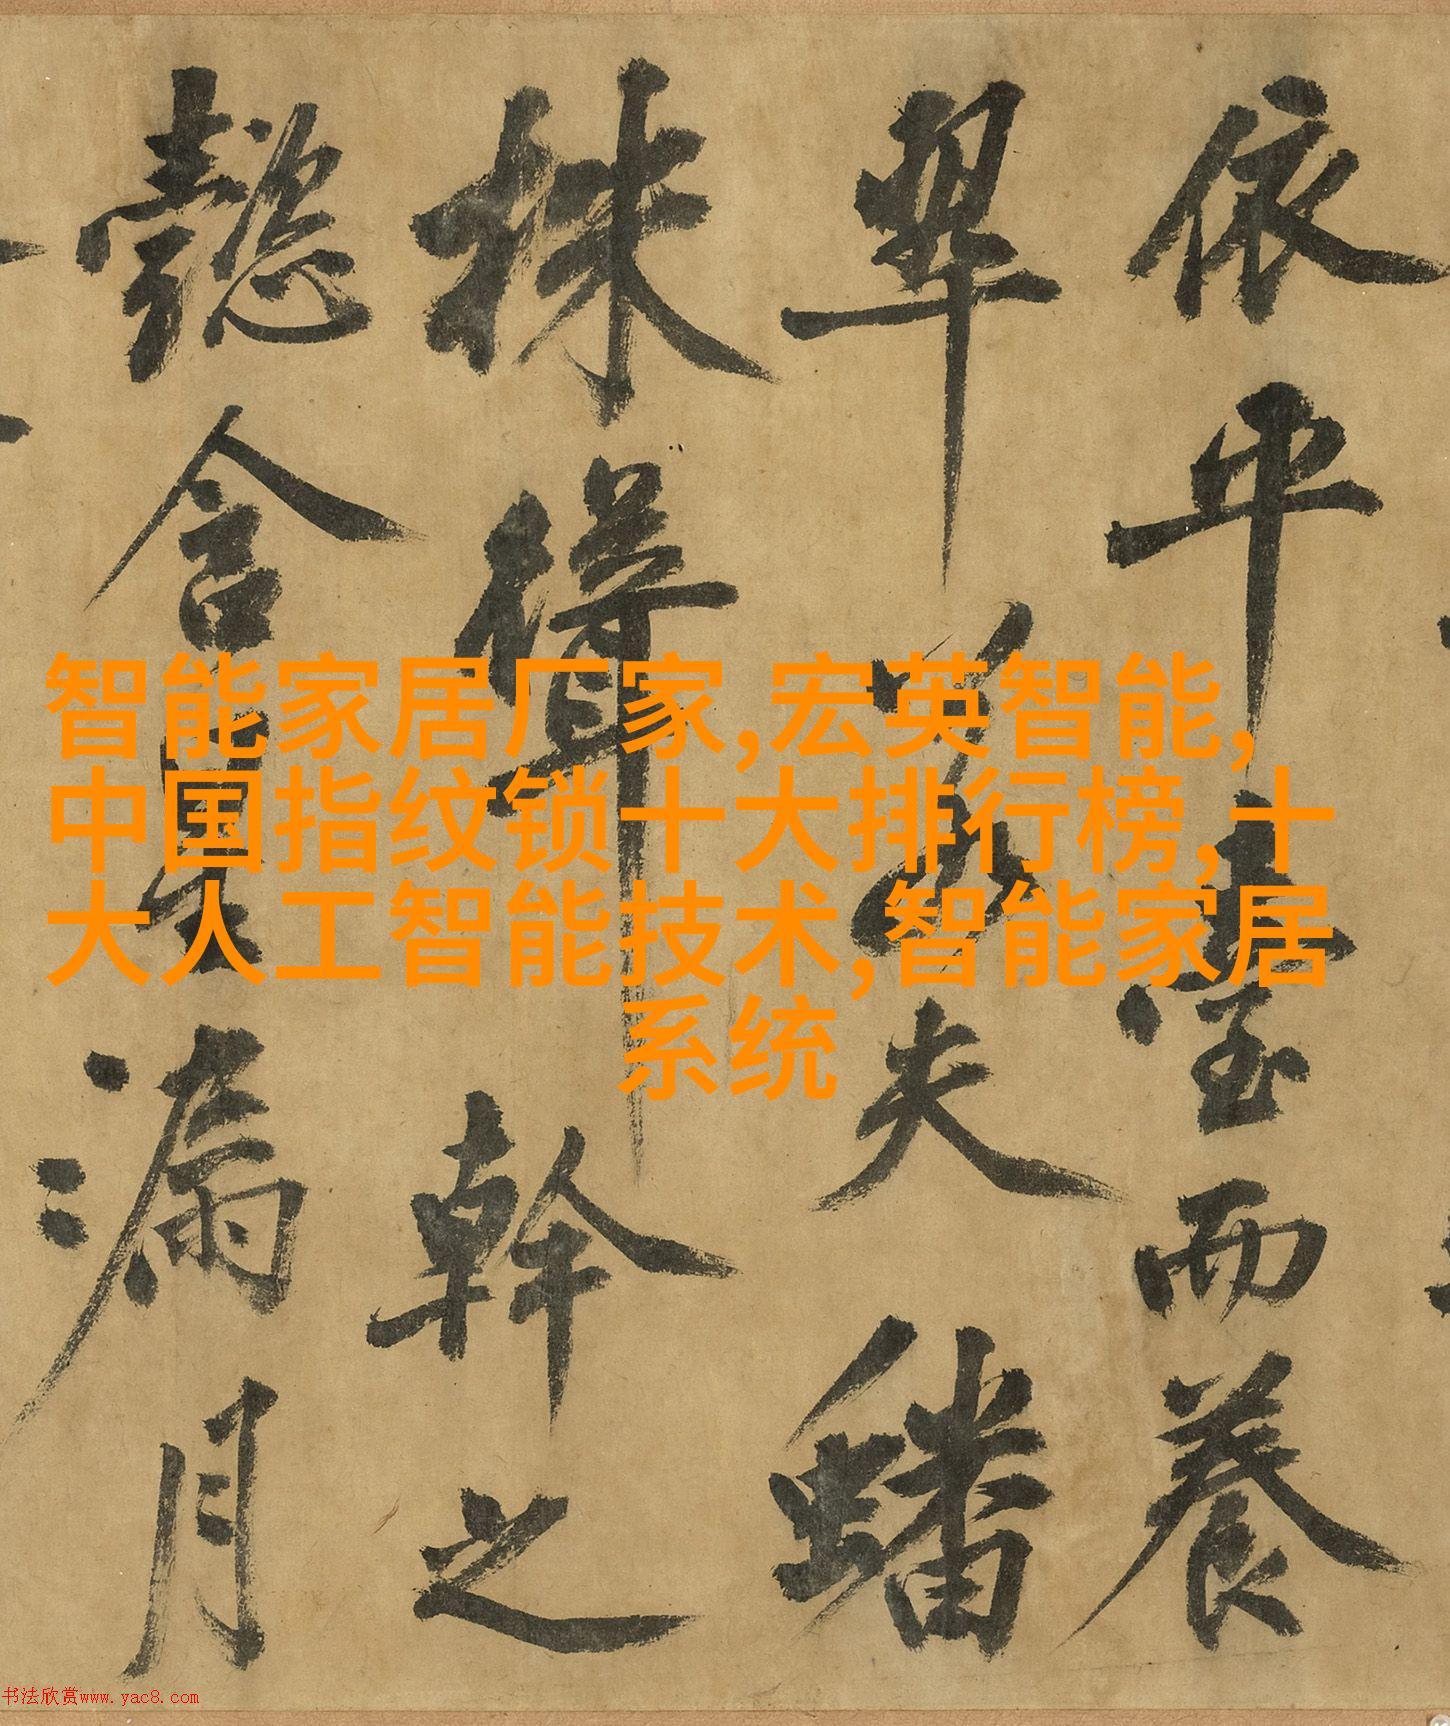 依平臺而養
翠若夫蟠
株聳幹之
懿含星漏月
智能家居厂家,宏英智能,
中国指纹锁十大排行榜,十
大人工智能技术,智能家居
系统
书法欣赏www.yac8.com